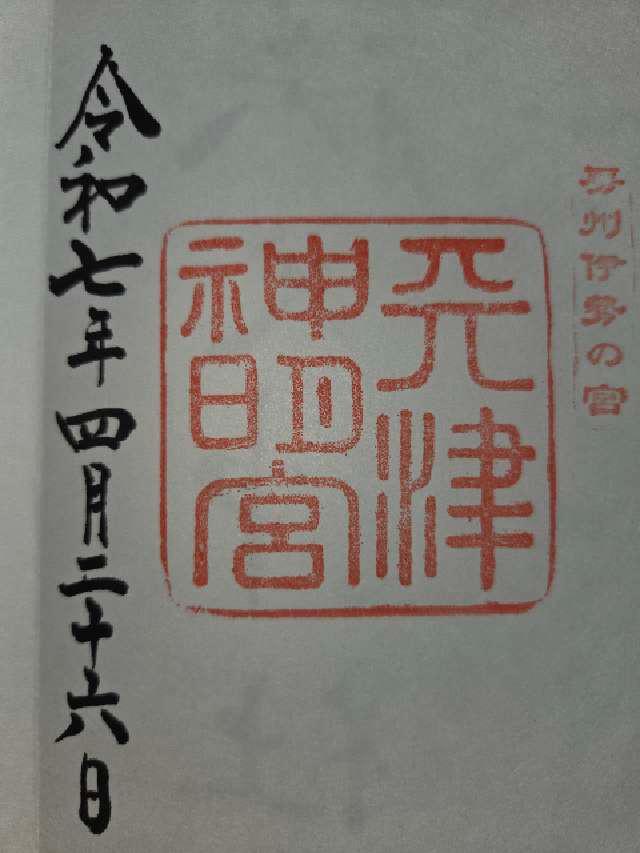 房州伊勢の宮
天津
神明宮
令和七年四月二十六日